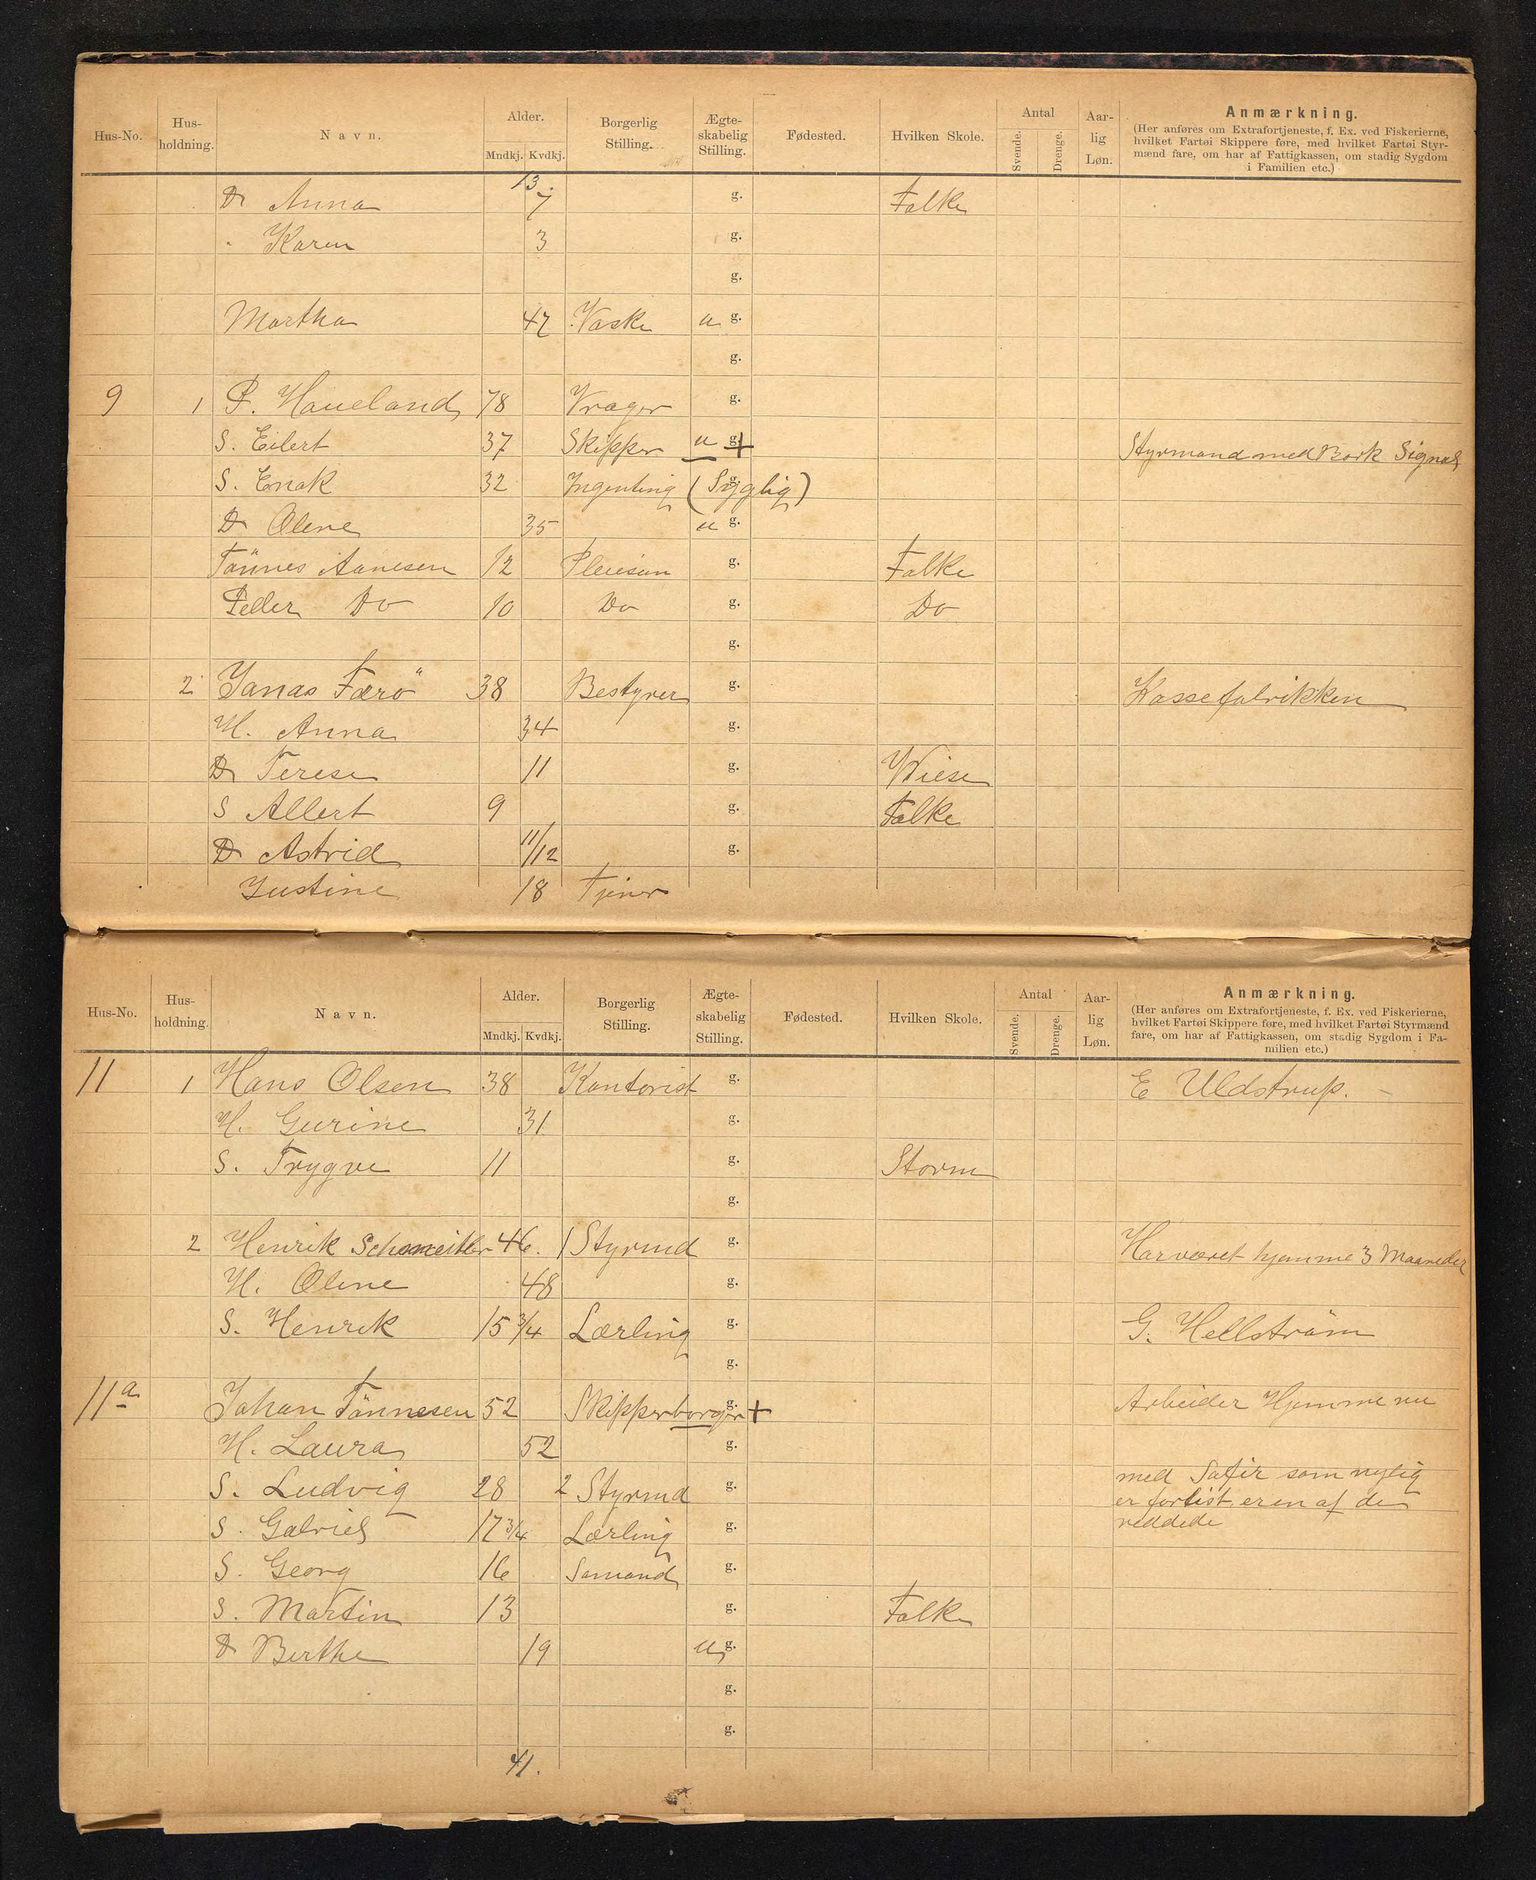 Hus-No. Hus-holdning. Navn. Alder. Mndkj. Kvdkj. Borgerlig Stilling. Ægte-skabelig Stilling. Fødested. Hvilken Skole. Antal Svende. Drenge. Aar-lig Løn. Anmærkning.
(Her anføres om Extrafortjeneste, f. Ex. ved Fiskerierne,
hvilket Fartøi Skippere føre, med hvilket Fartøi Styr-
mænd fare, om har af Fattigkassen, om stadig Sygdom
i Familien etc.)
13.
D Anna 7 g. Falke
" Karen 3 g.
g.
Martha 47 Vaske u g.
g.
9 1 P. Haueland 78 Vrager g.
S. Eilert 37 Skipper u g. + Styrmand med Bark Signal
S. Enok 32 Ingenting (Syglig) g.
D Olene 35 u g.
Tönnes Aanesen 12 Pleiesøn g. Falke
Peder Do 10 Do g. Do
g.
2 Jonas Færö 38 Bestyrer g. Kassefabrikken
H. Anna 34 g.
D Terese 11 g. Wiese
S Allert 9 g. Falke
D Astrid 11/12 g.
Justine 18 Tjener
Hus-No. Hus-holdning. Navn. Alder. Mndkj. Kvdkj. Borgerlig Stilling. Ægte-skabelig Stilling. Fødested. Hvilken Skole. Antal Svende. Drenge. Aar-lig Løn. Anmærkning.
(Her anføres om Extrafortjeneste, f. Ex. ved Fiskerierne,
hvilket Fartøi Skippere føre, med hvilket Fartøi Styrmænd
fare, om har af Fattigkassen, om stadig Sygdom i Fa-
milien etc.)
11 1 Hans Olsen 38 Kontorist g. E Uldstrup. -
H. Gurine 31 g.
S. Trygve 11 g. Storm
g.
2 Henrik 46. 1 Styrmd g. Har været hjemme 3 Maaneder
H. Oline 48 g.
S. Henrik 15 3/4 Lærling g. G. Hellström
g.
11a Johan Tönnesen 52 Skipperborger g. + Arbeider Hjemme nu
H. Laura 52 g.
S. Ludvig 28 2 Styrmd g. med Safir som nylig
er forlist, er en af de
reddede
S. Gabriel 17 3/4 Lærling g.
S. Georg 16 Sømand g.
S. Martin 13 g. Falke
D Berthe 19 u g.
g.
g.
41.